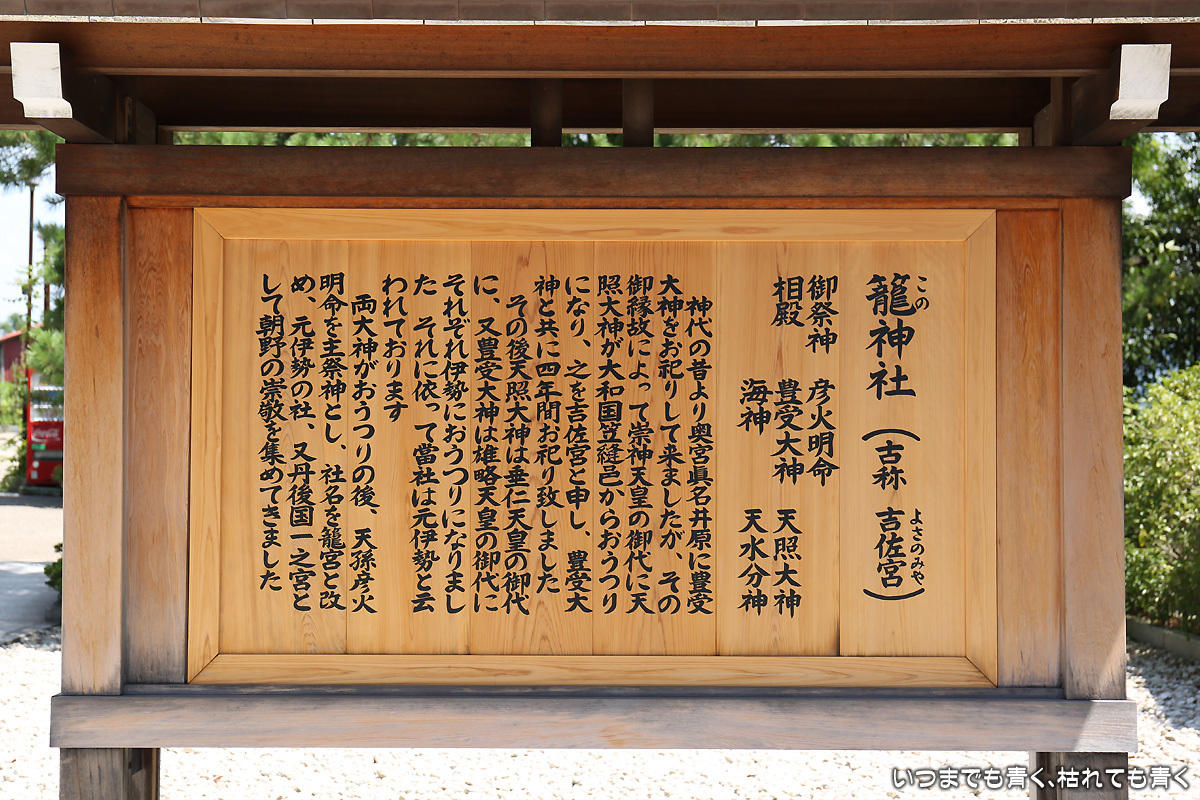 籠神社（古称 吉佐宮）
この
よさのみや
御祭神 彦火明命
相殿 豊受大神 天照大神
海神 天水分神
神代の昔より奥宮眞名井原に豊受
大神をお祀りして来ましたが、その
御縁故によって崇神天皇の御代に天
照大神が大和国笠縫邑からおうつり
になり、之を吉佐宮と申し、豊受大
神と共に四年間お祀り致しました
その後天照大神は垂仁天皇の御代
に、又豊受大神は雄略天皇の御代に
それぞれ伊勢におうつりになりまし
た それに依って當社は元伊勢と云
われております
両大神がおうつりの後、天孫彦火
明命を主祭神とし、社名を籠宮と改
め、元伊勢の社、又丹後国一之宮と
して朝野の崇敬を集めてきました
Coca-Cola
いつまでも青く、枯れても青く